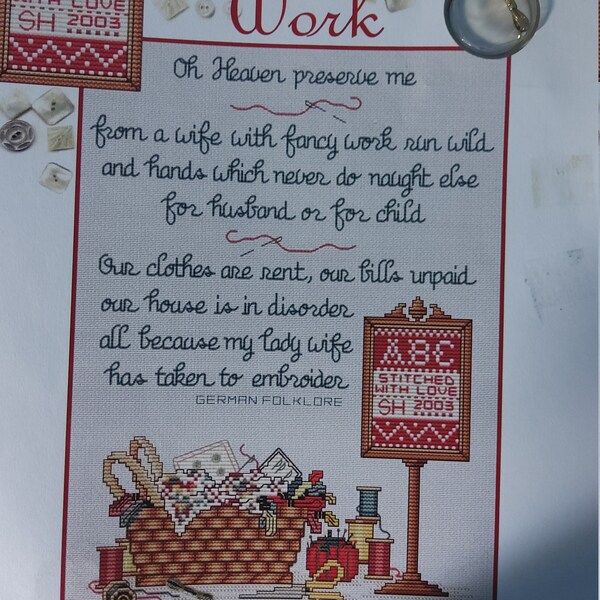 WITH LOVE
SH 2003
Work
Oh Heaven preserve me
from a wife with fancy work run wild
and hands which never do naught else
for husband or for child
Our clothes are rent, our bills unpaid
our house is in disorder
all because my lady wife
has taken to embroider
GERMAN FOLKLORE
ABC
STITCHED
WITH LOVE
SH 2003